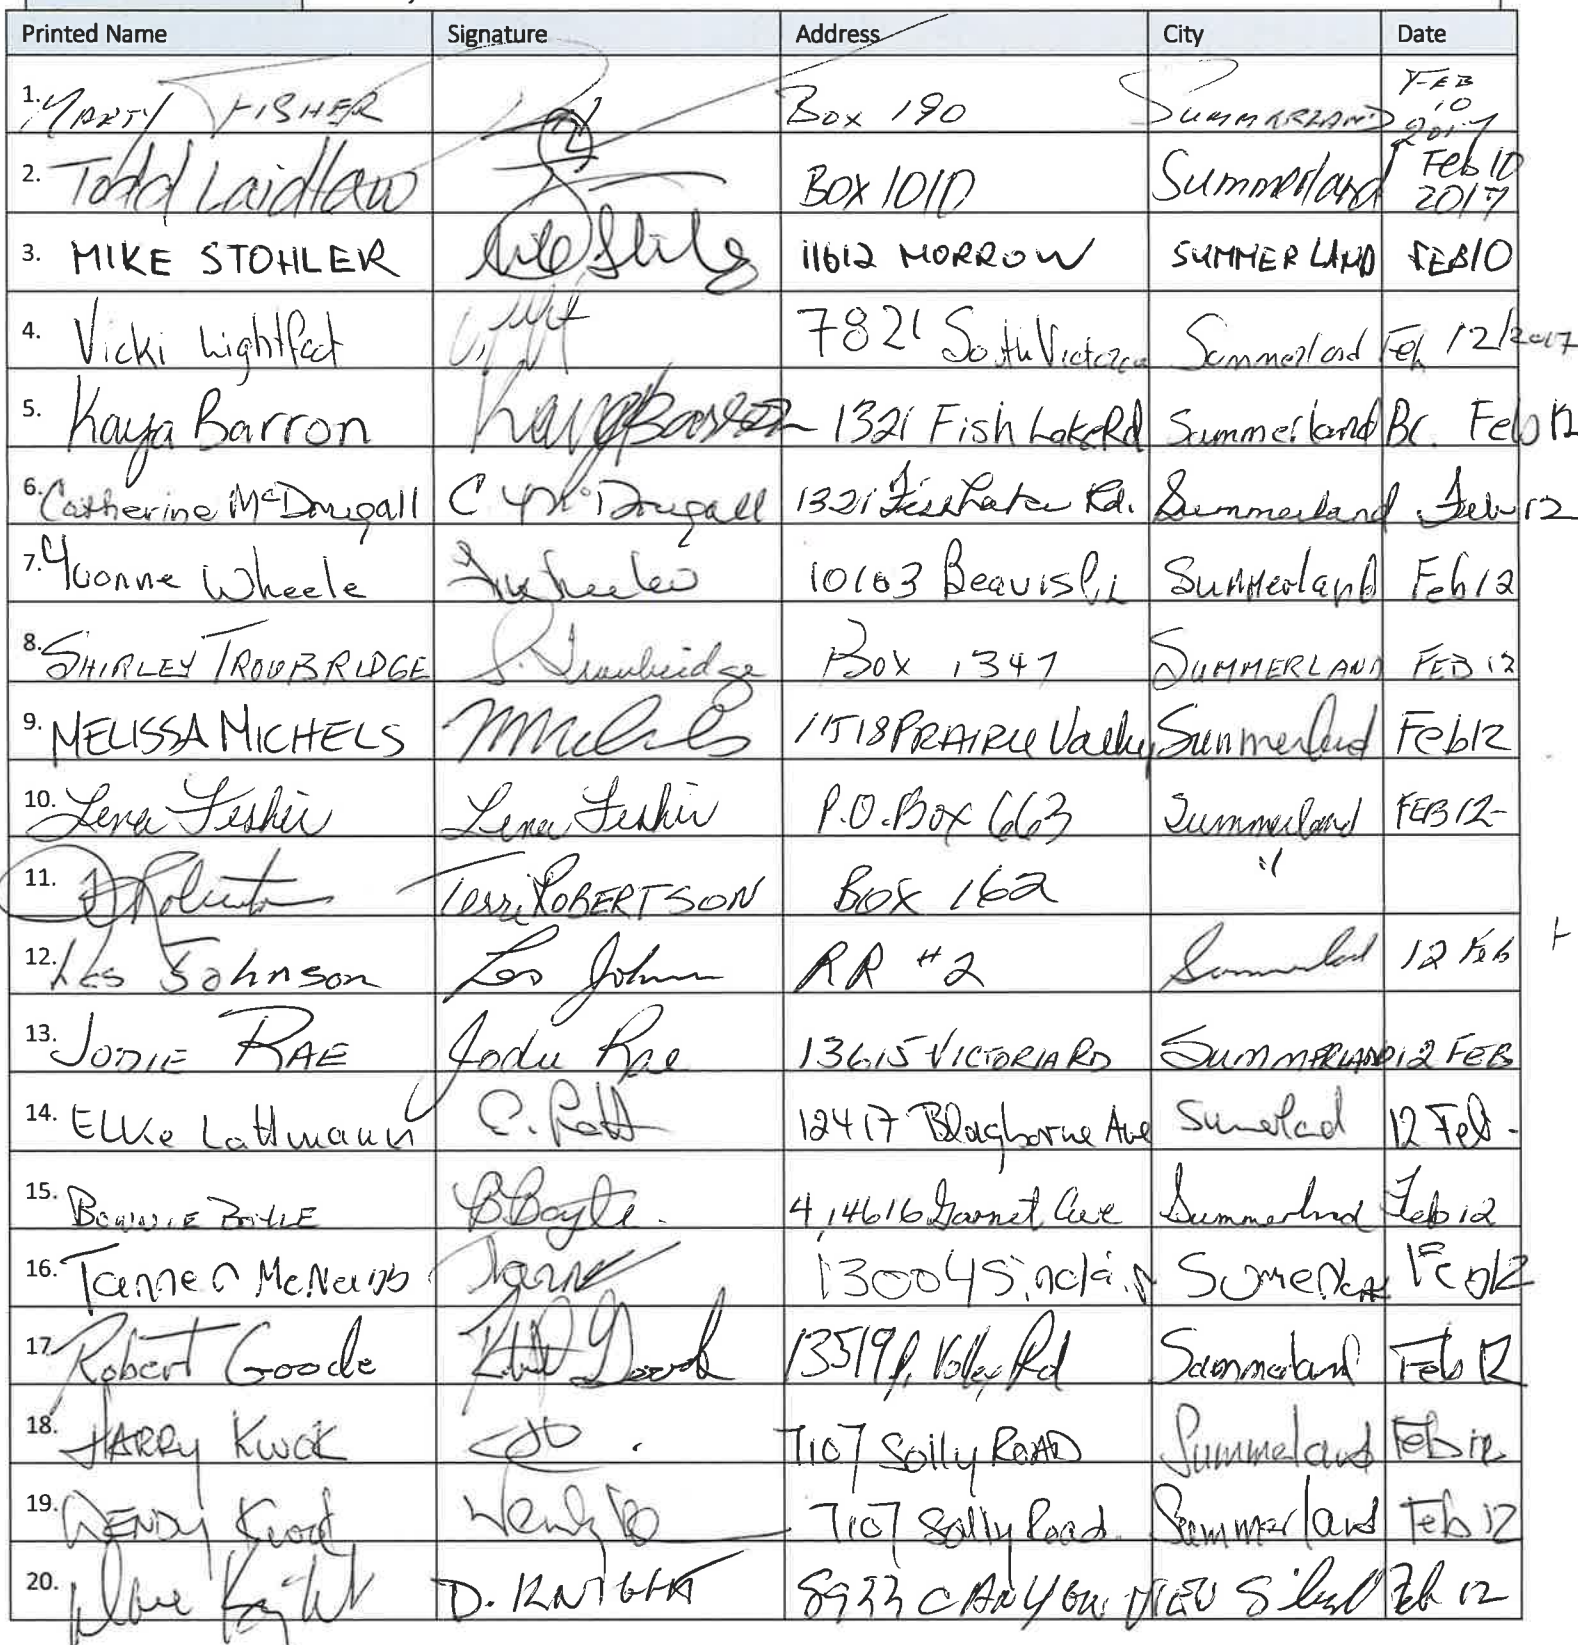 Printed Name Signature Address City Date
1. MARTY FISHER Box 190 SUMMERLAND FEB 10 2017
2. Todd Laidlaw BOX 1010 Summerland Feb 10 2017
3. MIKE STOHLER 11612 MORROW SUMMERLAND FEB10
4. Vicki Lightfoot 7821 South Victoria Summerland Feb 12/2017
5. Kaya Barron Kaya Barron 1321 Fish Lake Rd Summerland BC. Feb 12
6. Catherine McDougall C McDougall 1321 Fish Lake Rd. Summerland Feb 12
7. Yvonne Wheele 10103 Summerland Feb 12
8. SHIRLEY TROWBRIDGE S. Trowbridge Box 1347 SUMMERLAND FEB 12
9. MELISSA MICHELS 11518 PRAIRIE Valley Summerland Feb 12
10. Lena Fisher Lena Fisher P.O. Box 663 Summerland FEB 12-
11. Terri ROBERTSON BOX 162 "
12. Les Johnson Les Johnson RR #2 Summerland 12 Feb
13. JODIE RAE Jodie Rae 13615 VICTORIA RD SUMMERLAND 12 FEB
14. Elke Lattmann 12417 Blagborne Ave Sumerlad 12 Feb -
15. BONNIE BOYLE B Boyle. 4, 14616 Garnet Ave Summerland Feb 12
16. Tanner McNabb 13004 Sinclair Feb 12
17. Robert Goode 13519 P. Valley Rd Summerland Feb 12
18. HARRY Kwok 7107 Solly ROAD Summerland Feb 12
19. WENDY Kwok 7107 Solly Road. Summerland Feb 12
20. Dave Knight D. KNIGHT 8933 CANYON VIEW Feb 12